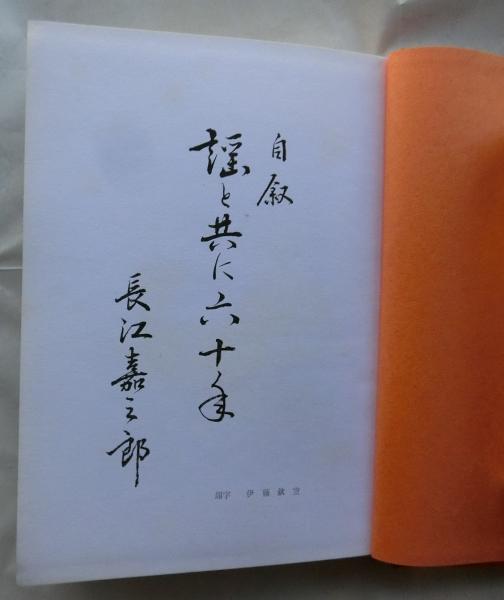 自叙
謡と共に六十年
長江嘉之郎
題字 伊藤